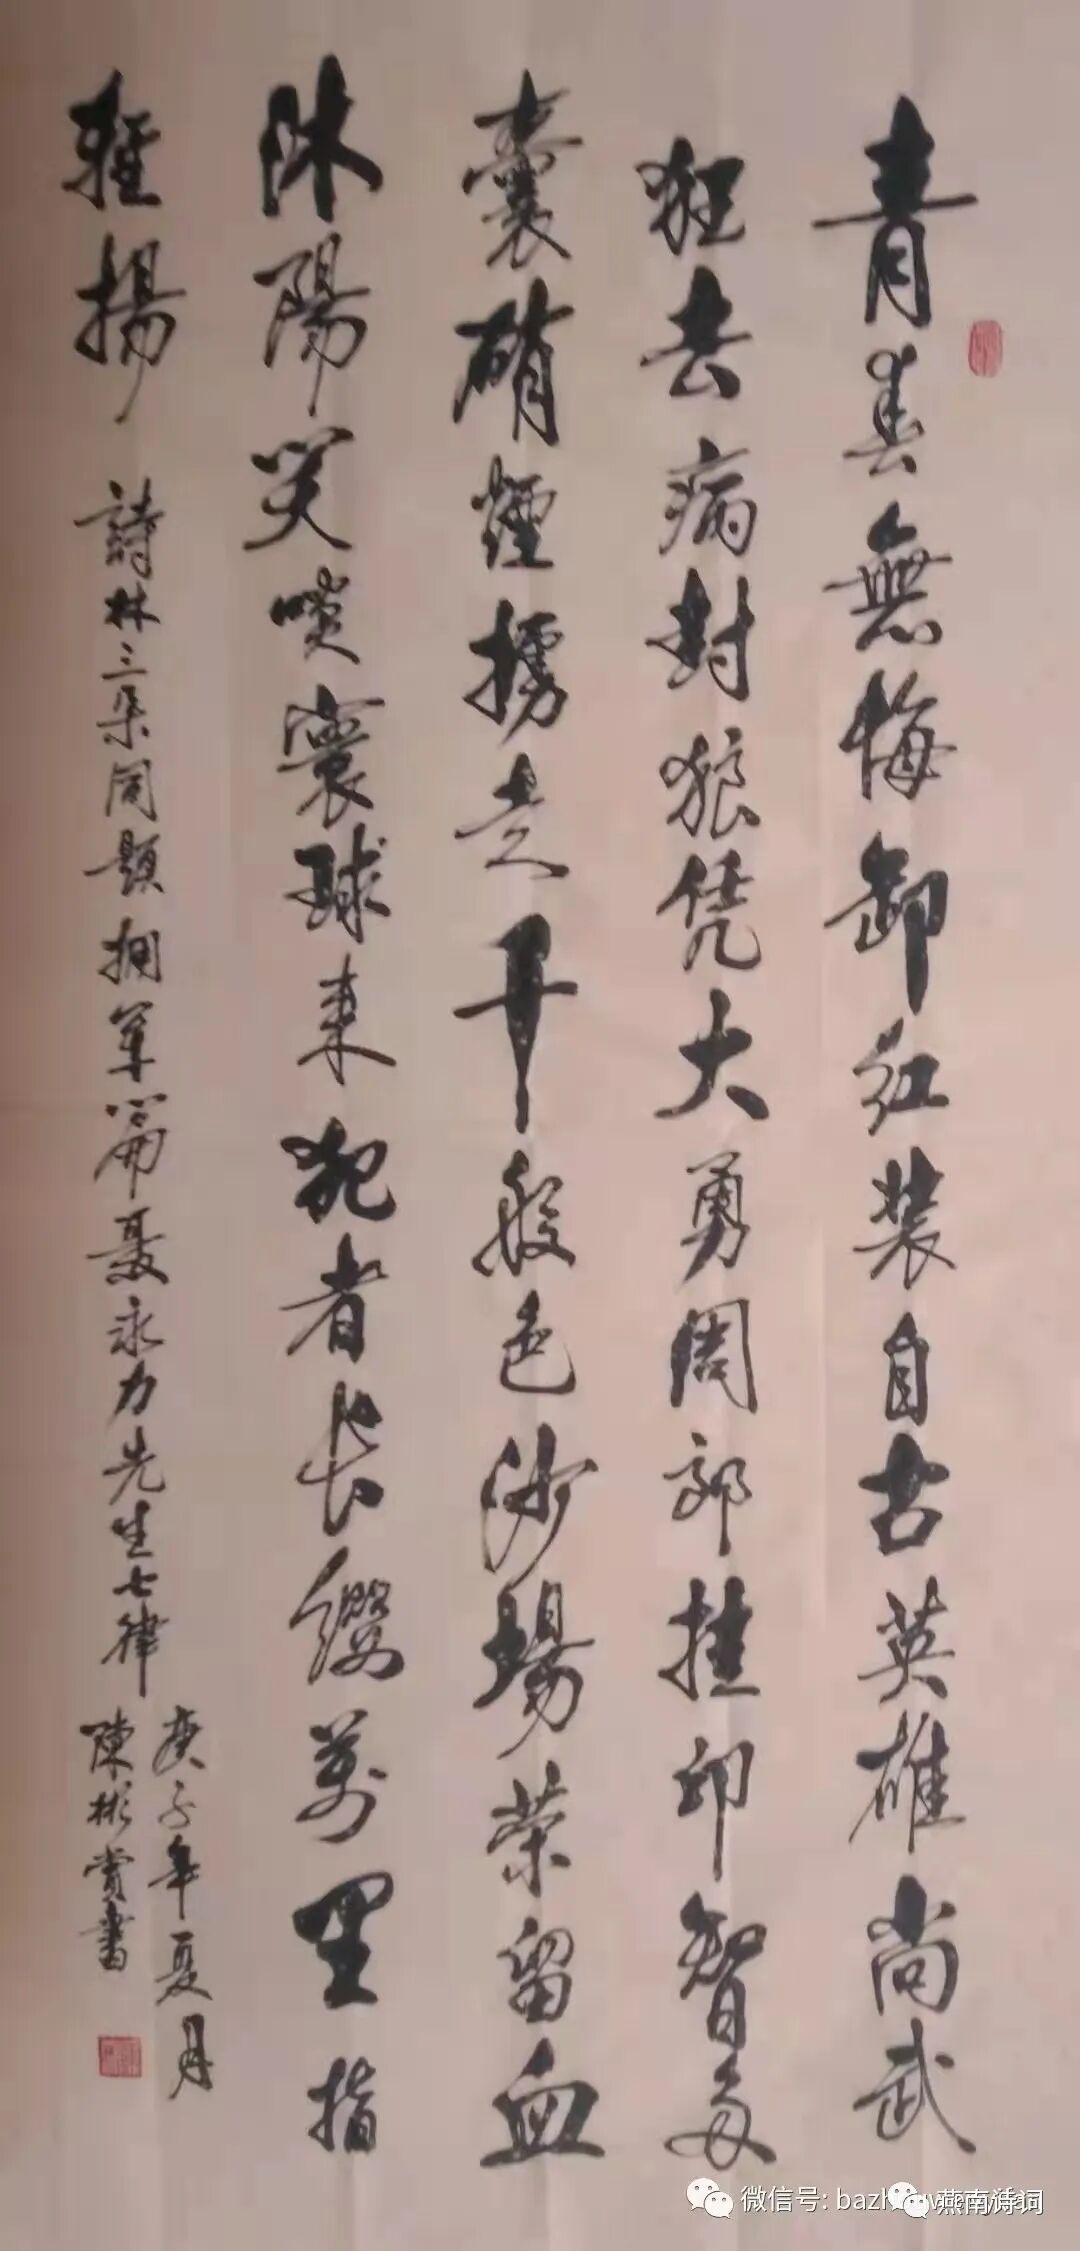 青春無悔卸红装自古英雄尚武
狂去病封狼凭大勇周郎挂印智多
囊硝煙擄走千般色沙場荣留血
沐陽笑啖寰球来犯者长缨萬里指
輕揚
詩林三朵同題拥军篇聂永力先生七律
庚子年夏月
陳彬賞書
微信号: bazh
燕南诗词